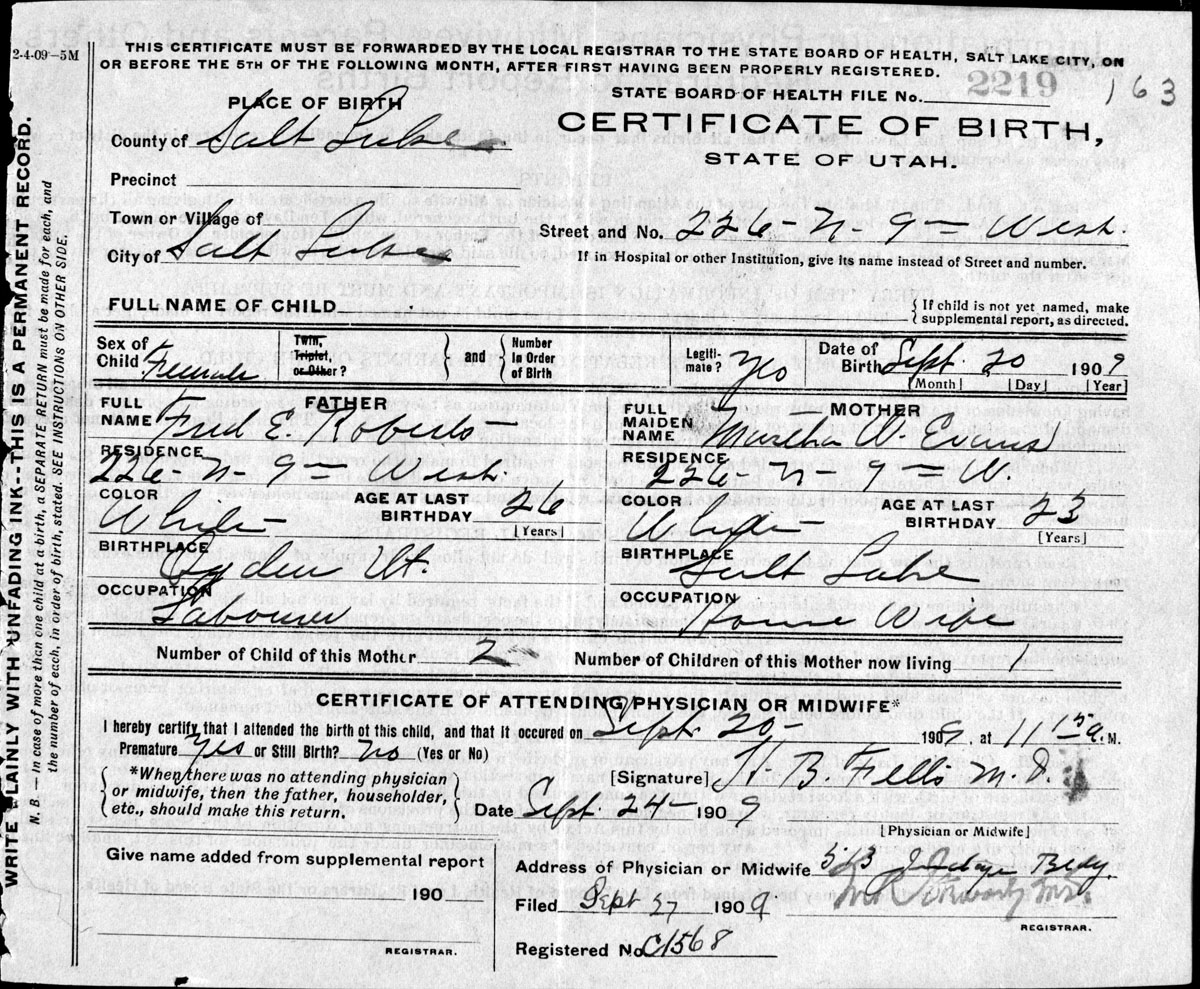 2-4-09—5M
THIS CERTIFICATE MUST BE FORWARDED BY THE LOCAL REGISTRAR TO THE STATE BOARD OF HEALTH, SALT LAKE CITY, ON
OR BEFORE THE 5TH OF THE FOLLOWING MONTH, AFTER FIRST HAVING BEEN PROPERLY REGISTERED.
2219
163
PLACE OF BIRTH
STATE BOARD OF HEALTH FILE No.
County of Salt Lake
CERTIFICATE OF BIRTH,
STATE OF UTAH.
Precinct
Town or Village of
Street and No. 226-N-9= West.
City of Salt Lake
If in Hospital or other Institution, give its name instead of Street and number.
FULL NAME OF CHILD
{If child is not yet named, make
supplemental report, as directed.
Sex of Child Female
Twin, Triplet, or Other?
} and {
Number In Order of Birth
Legiti-mate? Yes
Date of Birth Sept. 20 1909
[Month] [Day] [Year]
FATHER
FULL NAME Fred E. Roberts
RESIDENCE
226-N-9= West
COLOR White
AGE AT LAST BIRTHDAY 26
[Years]
BIRTHPLACE Ogden Ut.
OCCUPATION Labourer
MOTHER
FULL MAIDEN NAME Martha W. Evans
RESIDENCE
226-N 9= W.
COLOR White
AGE AT LAST BIRTHDAY 23
[Years]
BIRTHPLACE Salt Lake
OCCUPATION House Wife
Number of Child of this Mother 2
Number of Children of this Mother now living 1
CERTIFICATE OF ATTENDING PHYSICIAN OR MIDWIFE*
I hereby certify that I attended the birth of this child, and that it occured on Sept. 20- 1909, at 11 15 a. M.
Premature Yes or Still Birth? No (Yes or No)
{ *When there was no attending physician
or midwife, then the father, householder,
etc., should make this return. }
[Signature] B. Felts M.D.
Date Sept. 24- 1909
[Physician or Midwife]
Give name added from supplemental report
190
REGISTRAR.
Address of Physician or Midwife 513 Bldg.
Filed Sept 27 1909
REGISTRAR.
Registered No C1568
WRITE PLAINLY WITH UNFADING INK--THIS IS A PERMANENT RECORD.
N. B.—In case of more than one child at a birth, a SEPARATE RETURN must be made for each, and
the number of each, in order of birth, stated. SEE INSTRUCTIONS ON OTHER SIDE.